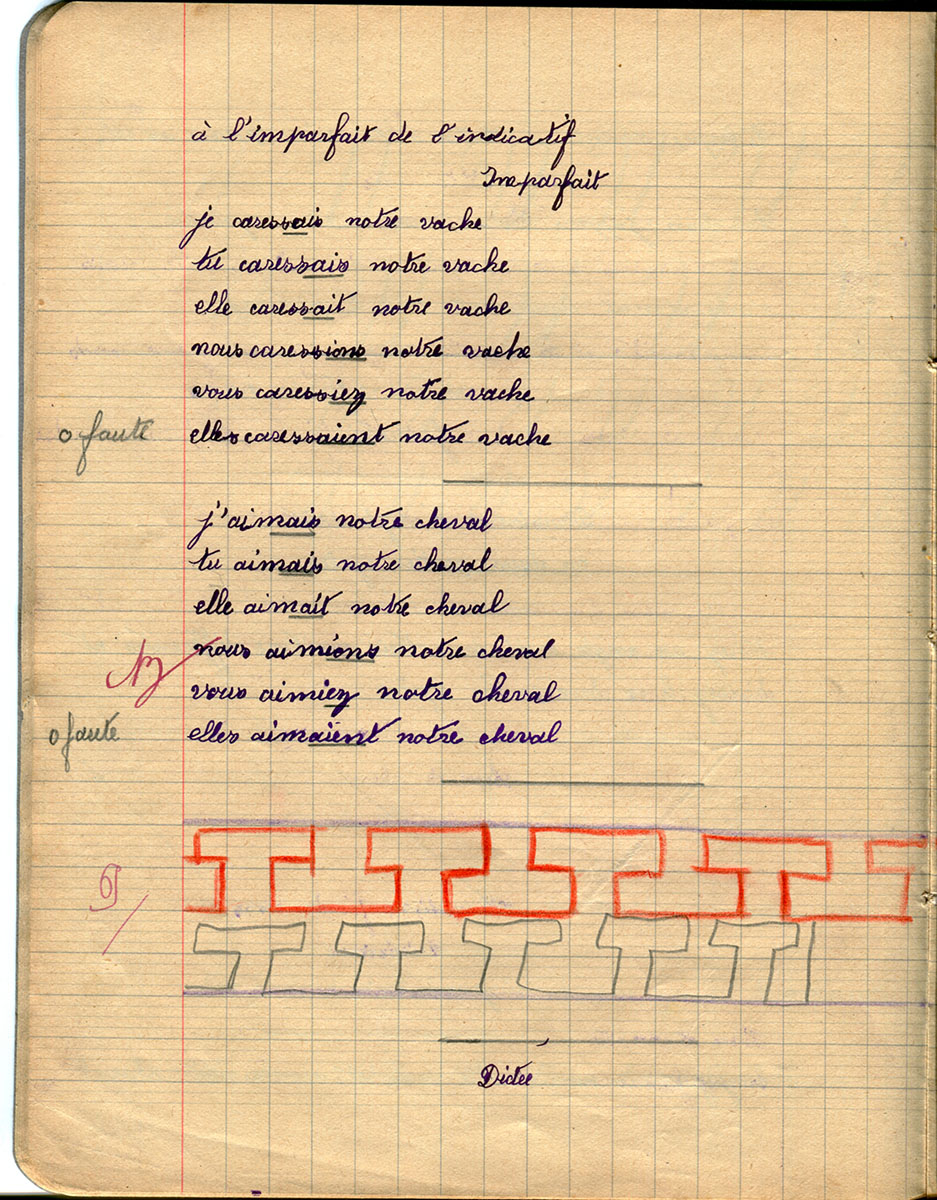 à l'imparfait de l'indicatif
Imparfait
je caressais notre vache
tu caressais notre vache
elle caressait notre vache
nous caressions notre vache
vous caressiez notre vache
0 faute elles caressaient notre vache
j'aimais notre cheval
tu aimais notre cheval
elle aimait notre cheval
nous aimions notre cheval
vous aimiez notre cheval
0 faute elles aimaient notre cheval
Dictée